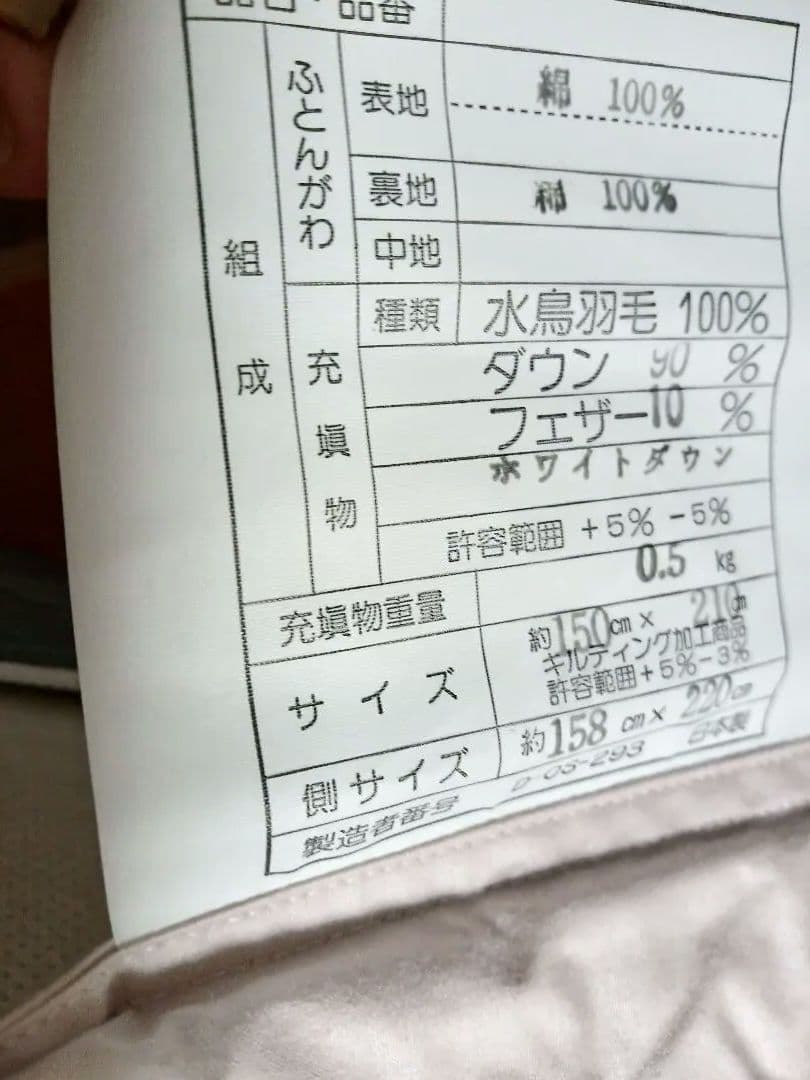 品名・品番
組成
ふとんがわ
表地 綿 100%
裏地 綿 100%
中地
充填物
種類 水鳥羽毛 100%
ダウン 90 %
フェザー 10 %
ホワイトダウン
許容範囲 +5% -5%
充填物重量 0.5 kg
サイズ 約150cm× 210cm
キルティング加工商品
許容範囲+5%-3%
側サイズ 約158cm× 220cm
製造者番号 D-03-293 日本製